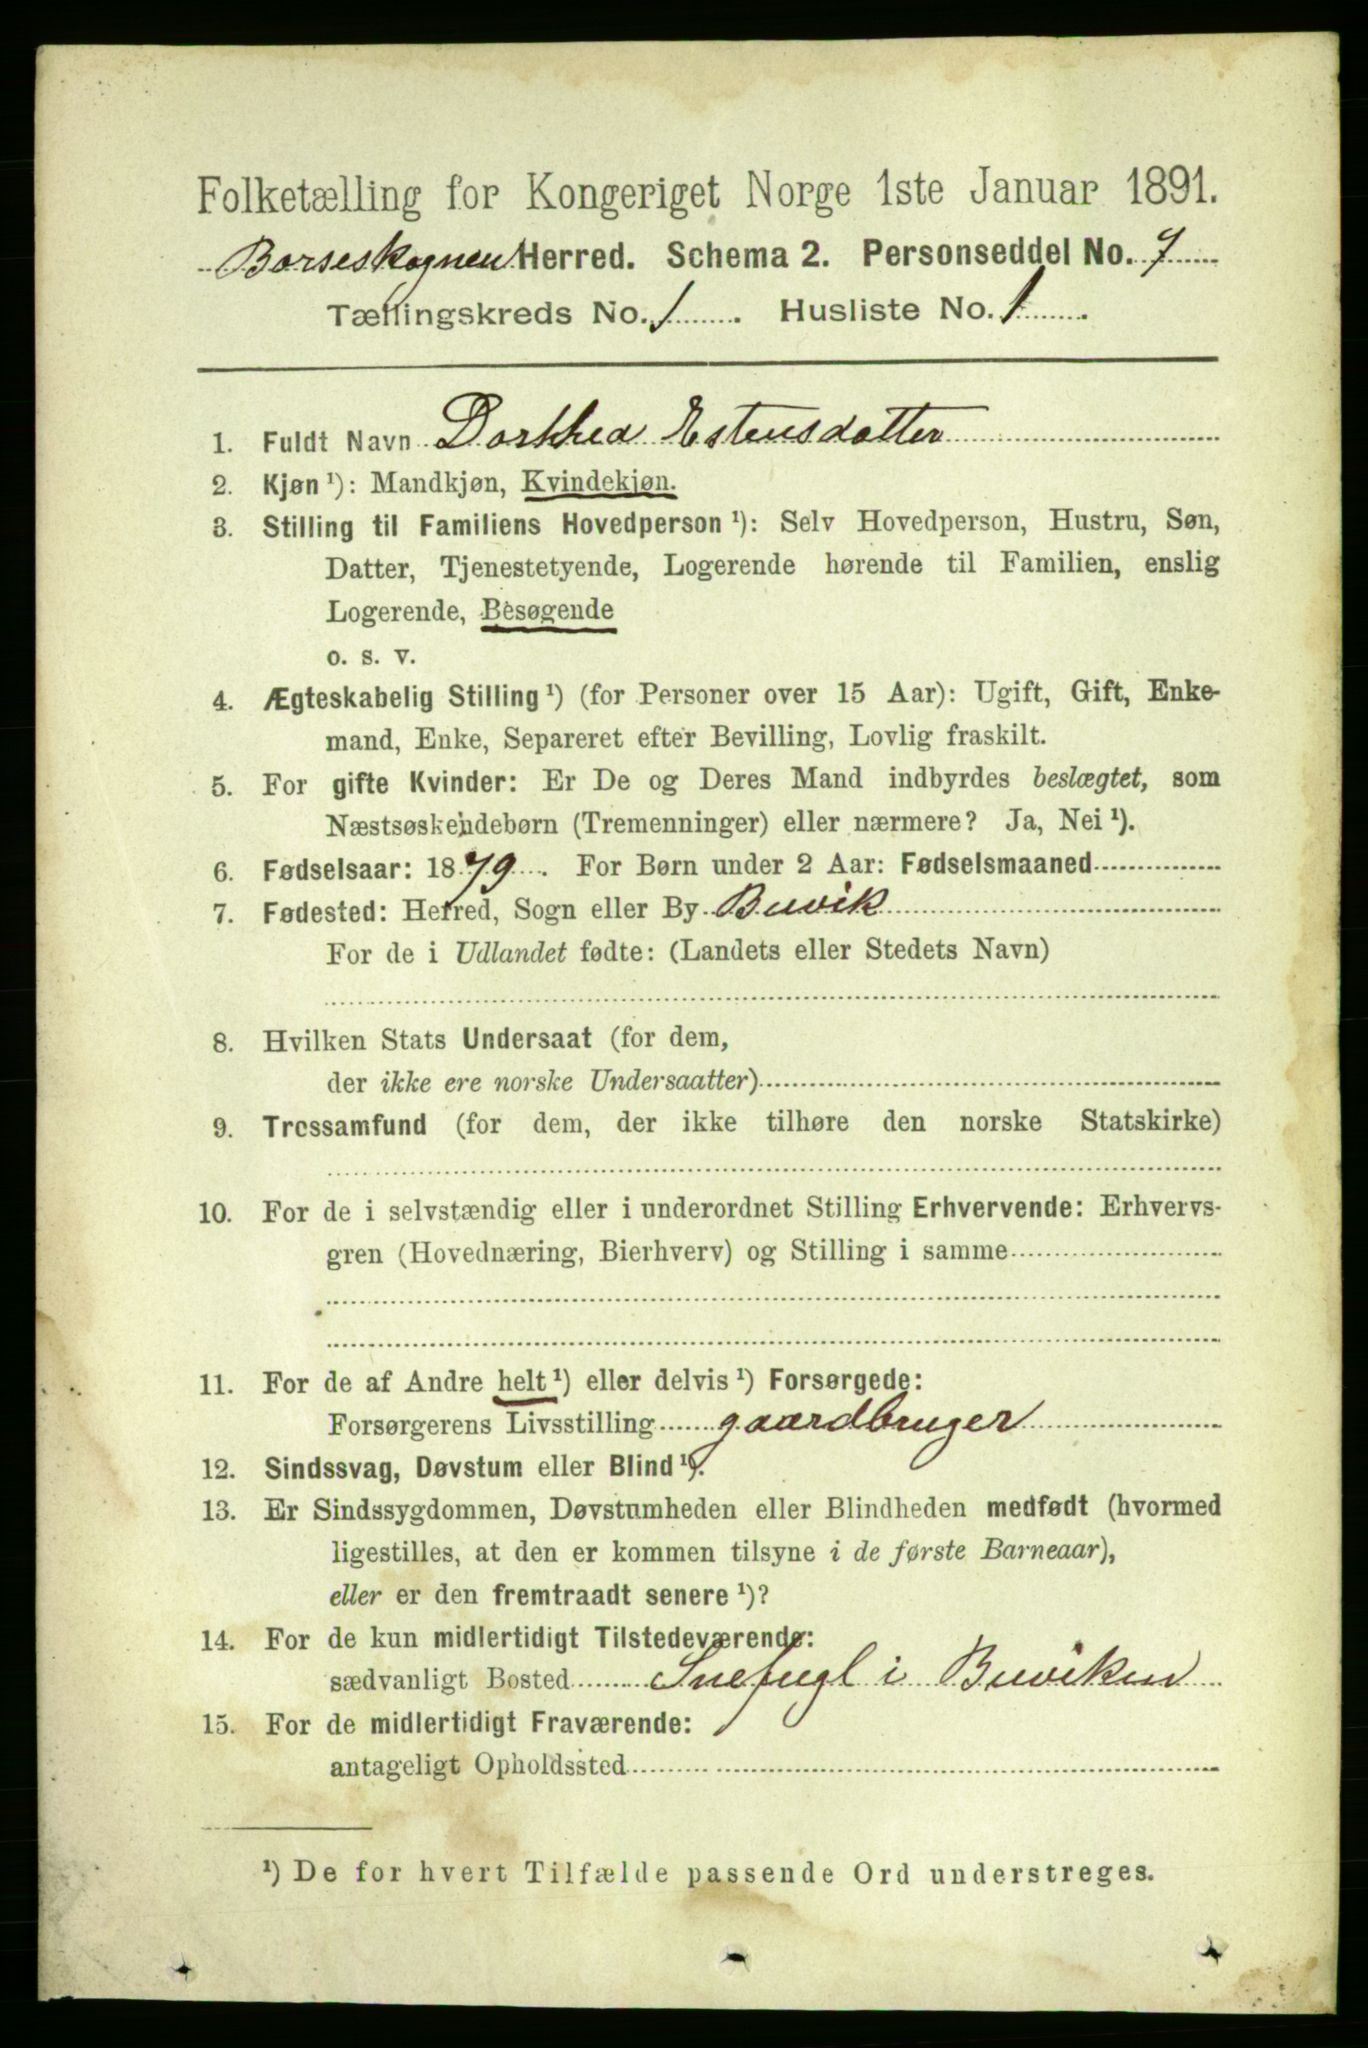 Folketælling for Kongeriget Norge 1ste Januar 1891.
Børseskognen Herred. Schema 2. Personseddel No. 7
Tællingskreds No. 1. Husliste No. 1.
1. Fuldt Navn Dorthea Estensdatter
2. Kjøn ¹): Mandkjøn, Kvindekjøn.
3. Stilling til Familiens Hovedperson ¹): Selv Hovedperson, Hustru, Søn,
Datter, Tjenestetyende, Logerende hørende til Familien, enslig
Logerende, Besøgende
o. s. v.
4. Ægteskabelig Stilling ¹) (for Personer over 15 Aar): Ugift, Gift, Enke-
mand, Enke, Separeret efter Bevilling, Lovlig fraskilt.
5. For gifte Kvinder: Er De og Deres Mand indbyrdes beslægtet, som
Næstsøskendebørn (Tremenninger) eller nærmere? Ja, Nei ¹).
6. Fødselsaar: 1879. For Børn under 2 Aar: Fødselsmaaned
7. Fødested: Herred, Sogn eller By Buvik
For de i Udlandet fødte: (Landets eller Stedets Navn)
8. Hvilken Stats Undersaat (for dem,
der ikke ere norske Undersaatter)
9. Trossamfund (for dem, der ikke tilhøre den norske Statskirke)
10. For de i selvstændig eller i underordnet Stilling Erhvervende: Erhvervs-
gren (Hovednæring, Bierhverv) og Stilling i samme
11. For de af Andre helt ¹) eller delvis ¹) Forsørgede:
Forsørgerens Livsstilling gaardbruger
12. Sindssvag, Døvstum eller Blind ¹).
13. Er Sindssygdommen, Døvstumheden eller Blindheden medfødt (hvormed
ligestilles, at den er kommen tilsyne i de første Barneaar),
eller er den fremtraadt senere ¹)?
14. For de kun midlertidigt Tilstedeværende:
sædvanligt Bosted Snefugl i Buviken
15. For de midlertidigt Fraværende:
antageligt Opholdssted
¹) De for hvert Tilfælde passende Ord understreges.